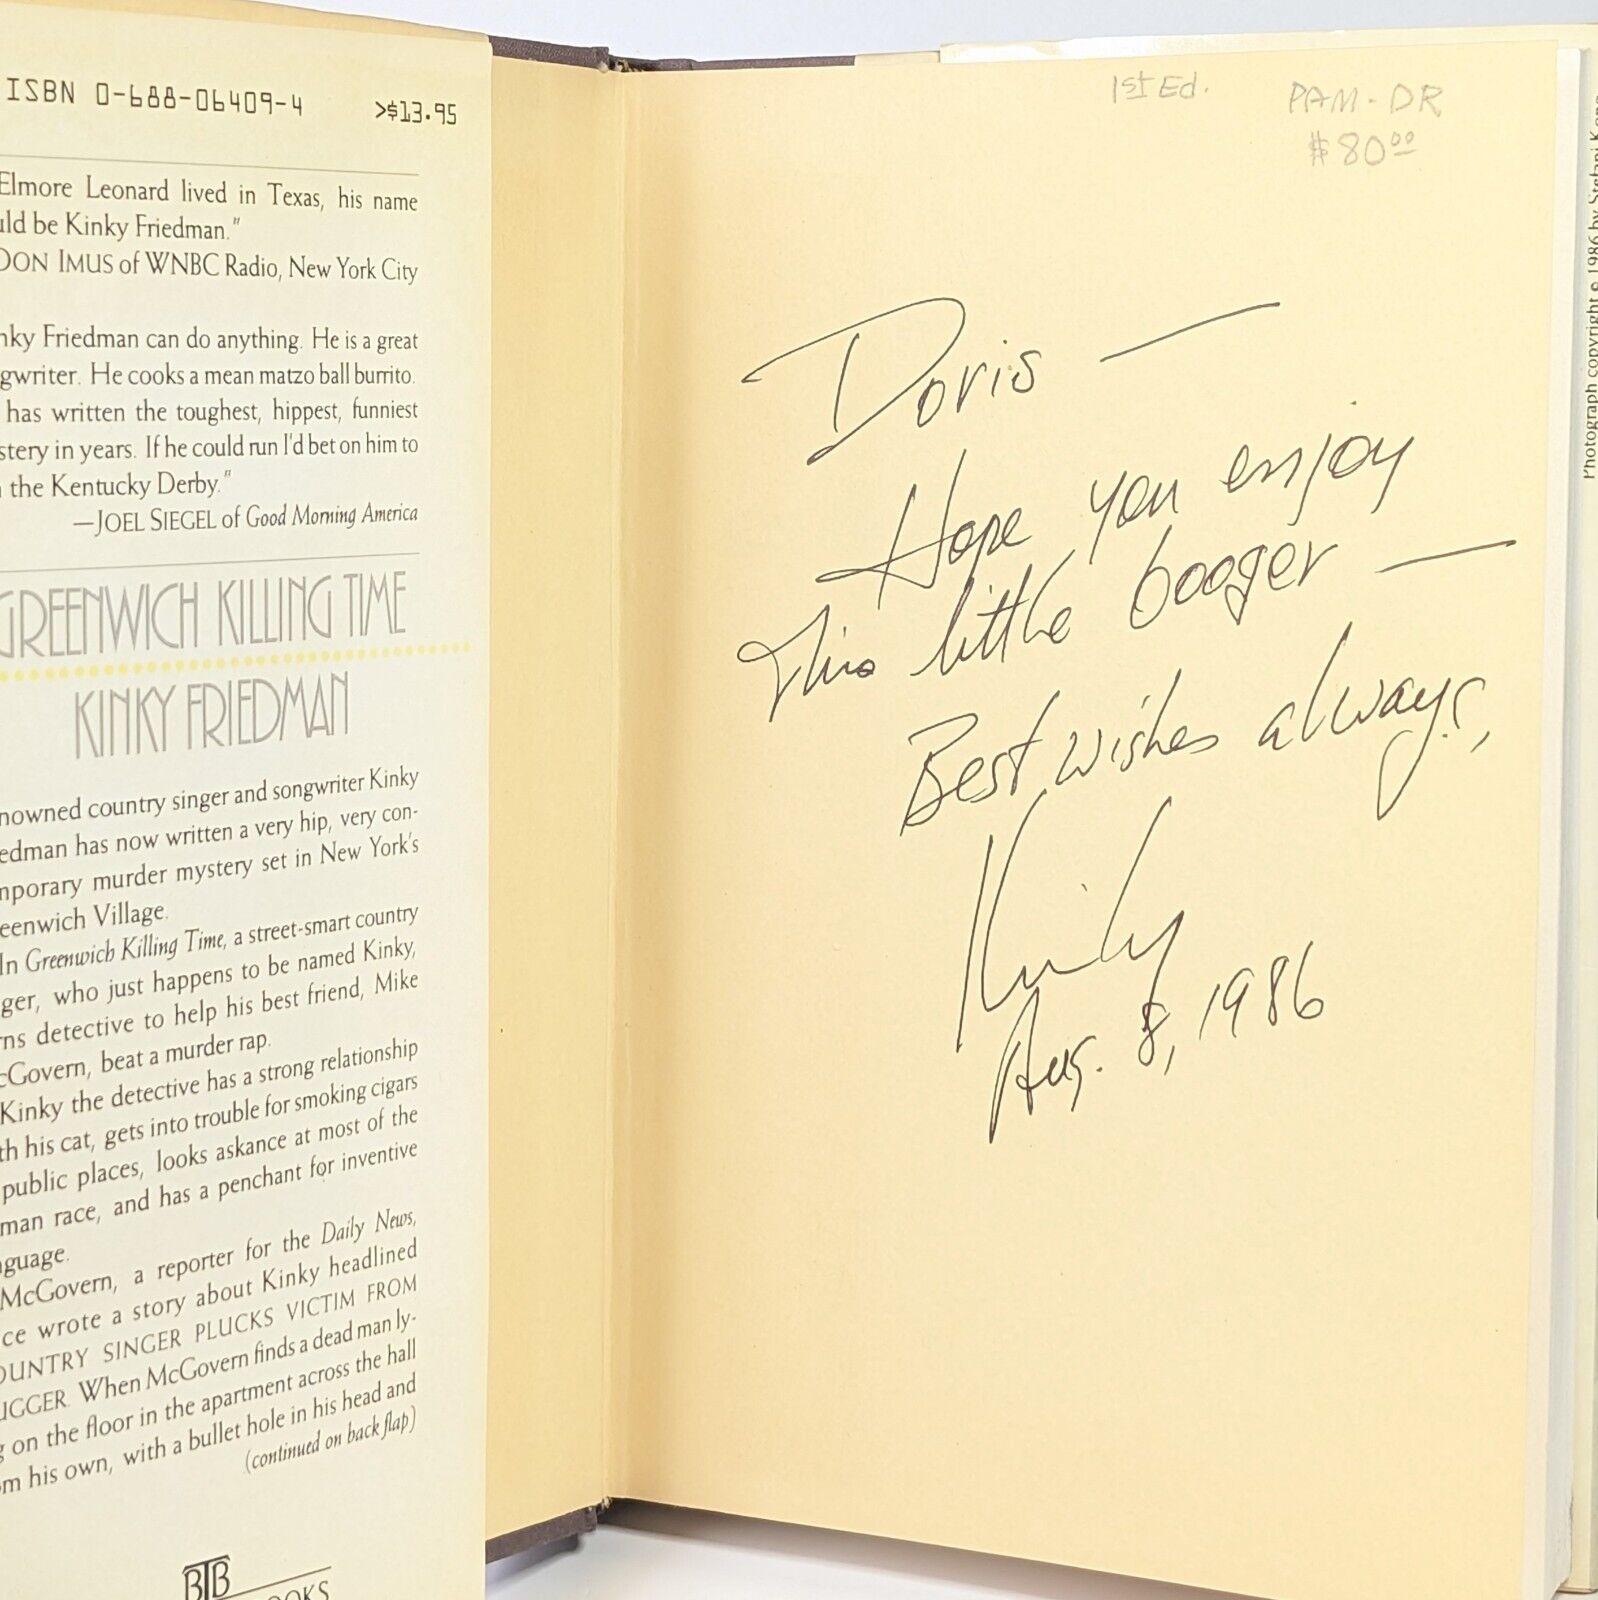 ISBN 0-688-06409-4
>$13.95
Elmore Leonard lived in Texas, his name
uld be Kinky Friedman."
DON IMUS of WNBC Radio, New York City
nky Friedman can do anything. He is a great
gwriter. He cooks a mean matzo ball burrito.
has written the toughest, hippest, funniest
stery in years. If he could run I'd bet on him to
the Kentucky Derby."
—JOEL SIEGEL of Good Morning America
GREENWICH KILLING TIME
KINKY FRIEDMAN
nowned country singer and songwriter Kinky
edman has now written a very hip, very con-
mporary murder mystery set in New York's
eenwich Village.
In Greenwich Killing Time, a street-smart country
ger, who just happens to be named Kinky,
rns detective to help his best friend, Mike
cGovern, beat a murder rap.
Kinky the detective has a strong relationship
th his cat, gets into trouble for smoking cigars
public places, looks askance at most of the
man race, and has a penchant for inventive
nguage.
McGovern, a reporter for the Daily News,
ce wrote a story about Kinky headlined
OUNTRY SINGER PLUCKS VICTIM FROM
UGGER. When McGovern finds a dead man ly-
g on the floor in the apartment across the hall
om his own, with a bullet hole in his head and
(continued on back flap)
BTB
OOKS
1st Ed.
PAM-DR
$80.00
Doris —
Hope you enjoy
this little booger —
Best wishes always,
Kinky
Aug. 8, 1986
Photograph copyright © 1986 by Stefani K